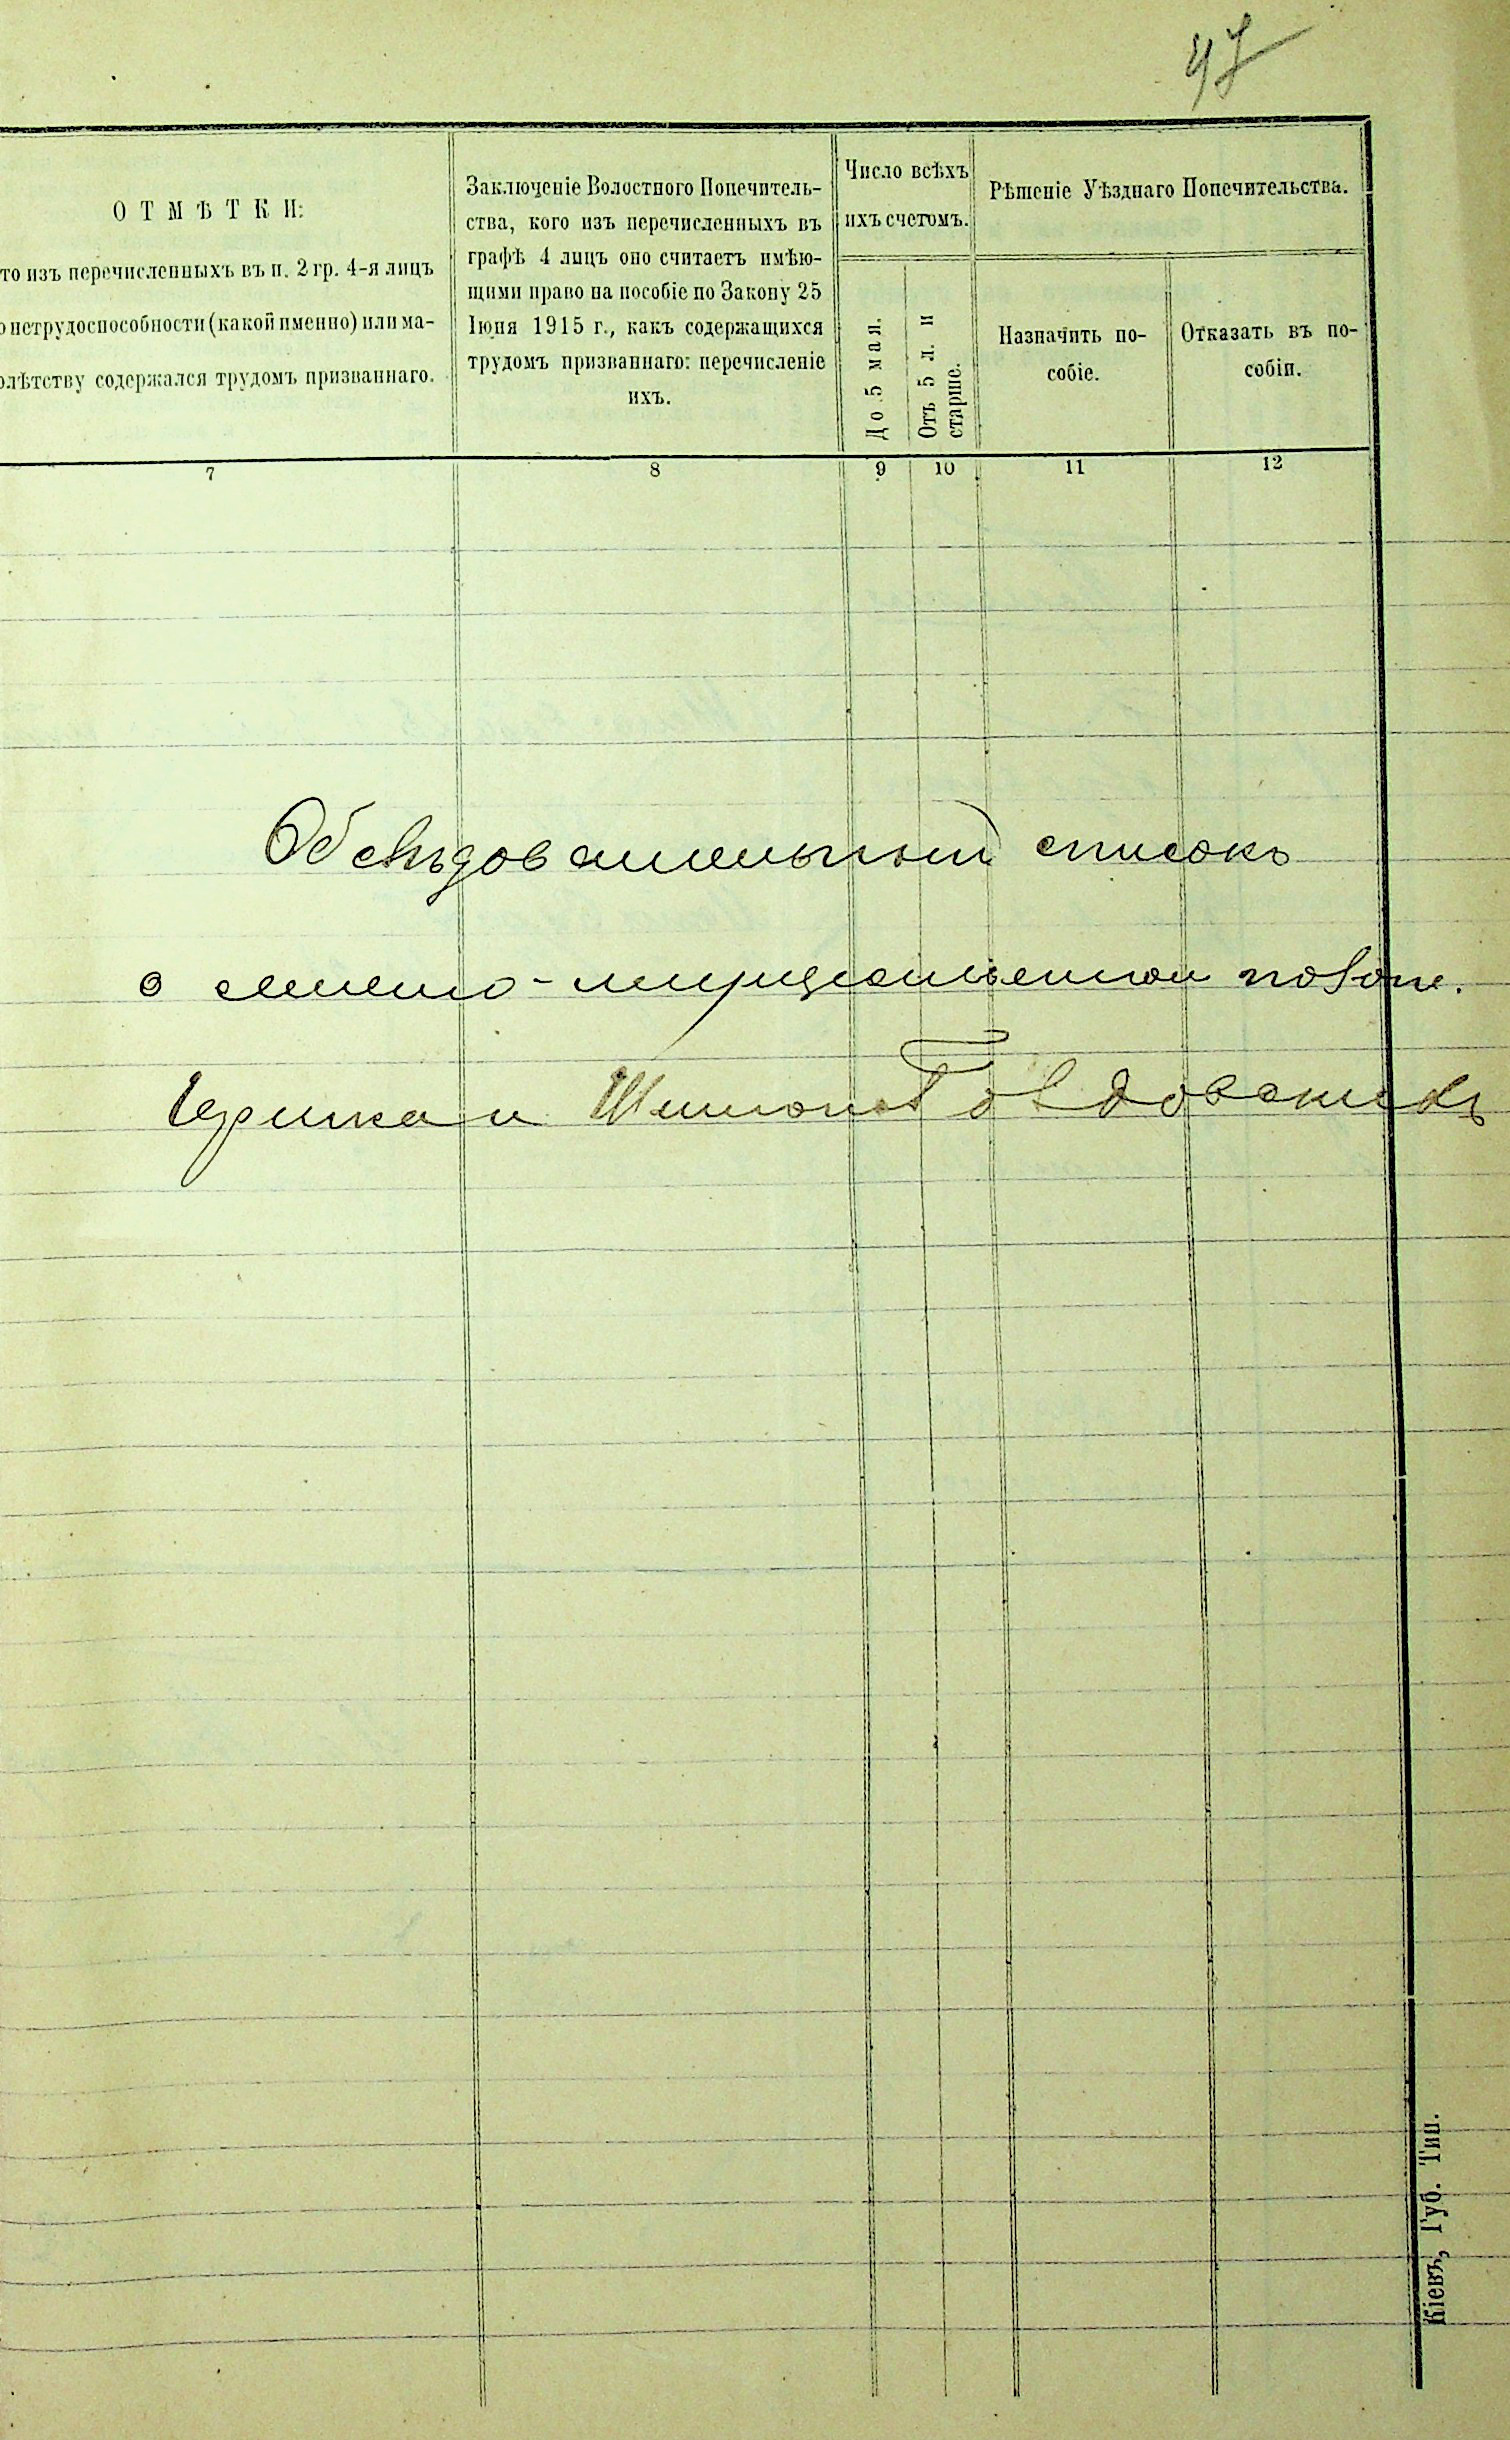 47
О Т М Ѣ Т К И:
то изъ перечисленныхъ въ п. 2 гр. 4-я лицъ
о нетрудоспособности (какой именно) или ма-
олѣтству содержался трудомъ призваннаго.
Заключеніе Волостного Попечитель-
ства, кого изъ перечисленныхъ въ
графѣ 4 лицъ оно считаетъ имѣю-
щими право на пособіе по Закону 25
Іюня 1915 г., какъ содержащихся
трудомъ призваннаго: перечисленіе
ихъ.
Число всѣхъ
ихъ счетомъ.
До 5 мая.
Отъ 5 л. и
старше.
Рѣшеніе Уѣзднаго Попечительства.
Назначить по-
собіе.
Отказать въ по-
собіи.
7 8 9 10 11 12
Обслѣдовательный списокъ
о семейно-имущественном
Шимона
Кіевъ, Губ. Тип.